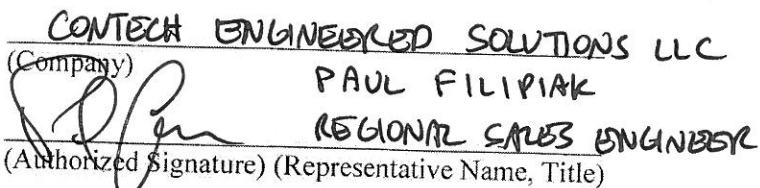 CONTECH ENGINEERED SOLUTIONS LLC
(Company)
PAUL FILIPIAK
REGIONAL SALES ENGINEER
(Authorized Signature) (Representative Name, Title)